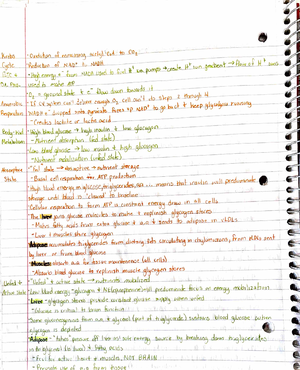 Krebs - Oxidation of remaining acetyl CoA to CO₂
Cycle - Reduction of NAD⁺ → NADH
ETC + - "High energy e⁻ from NADH used to fuel H⁺ ion pumps → create H⁺ ion gradient → flow of H⁺ ions
Ox. Phos. used to make ATP
- O₂ = ground state & e⁻ flow down towards it
Anaerobic - If cell within can't get enough O₂, cell can't do steps 2 through 4
Respiration - NADH e⁻ dumped onto pyruvate frees up NAD⁺ to go back & keep glycolysis running
- Creates lactate or lactic acid
Body Fuel - High blood glucose → high insulin & low glucagon
Metabolism - Nutrient absorption (fed state)
- Low blood glucose → low insulin & high glucagon
- Nutrient mobilization (fasted state)
Absorptive - "Fed" state → absorptive → nutrient storage
State - Fuels cell respiration for ATP production
- High blood energy in glucose, triglycerides, AA ... means that insulin will predominate
storage until blood is "cleared" to baseline
- Cellular respiration to form ATP is constant energy draw in all cells
- The liver joins glucose molecules to make & replenish glycogen stores
- Makes fatty acids from extra glucose & AA & sends to adipose in VLDLs
- Liver & muscles store glycogen
- Adipose accumulates triglycerides from dietary fats circulating in chylomicrons, from VLDLs sent
by liver or from blood glucose
- Muscles absorb AA for protein maintenance (all cells)
- Absorb blood glucose to replenish muscle glycogen stores
- "Fasted" = active state → nutrients mobilized
Active State - Low blood energy → glucagon & NE/epinephrine/cortisol predominate focus on energy mobilization
- Liver - glycogen stores provide constant glucose supply when needed
- Glucose is critical to brain function
- Some gluconeogenesis from AA & glycerol (part of triglycerides) sustains blood glucose when
glycogen is depleted
- Adipose - takes pressure off liver as sole energy source by breaking down triglycerides
to glycerol (to liver) & fatty acids
- Fuel for active heart & muscles, NOT BRAIN